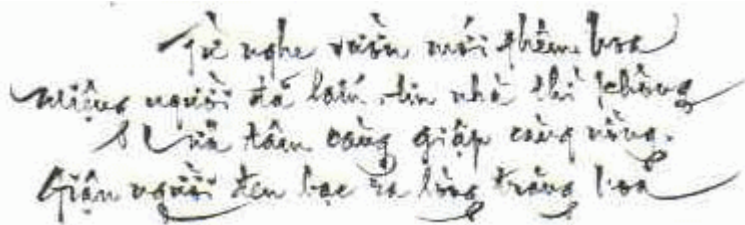 Từ nghe vườn mới thêm hoa
Miệng người đã lắm, tin nhà thì không
Lửa tâm càng giập càng nồng
Giận người đen bạc ra lòng trăng hoa